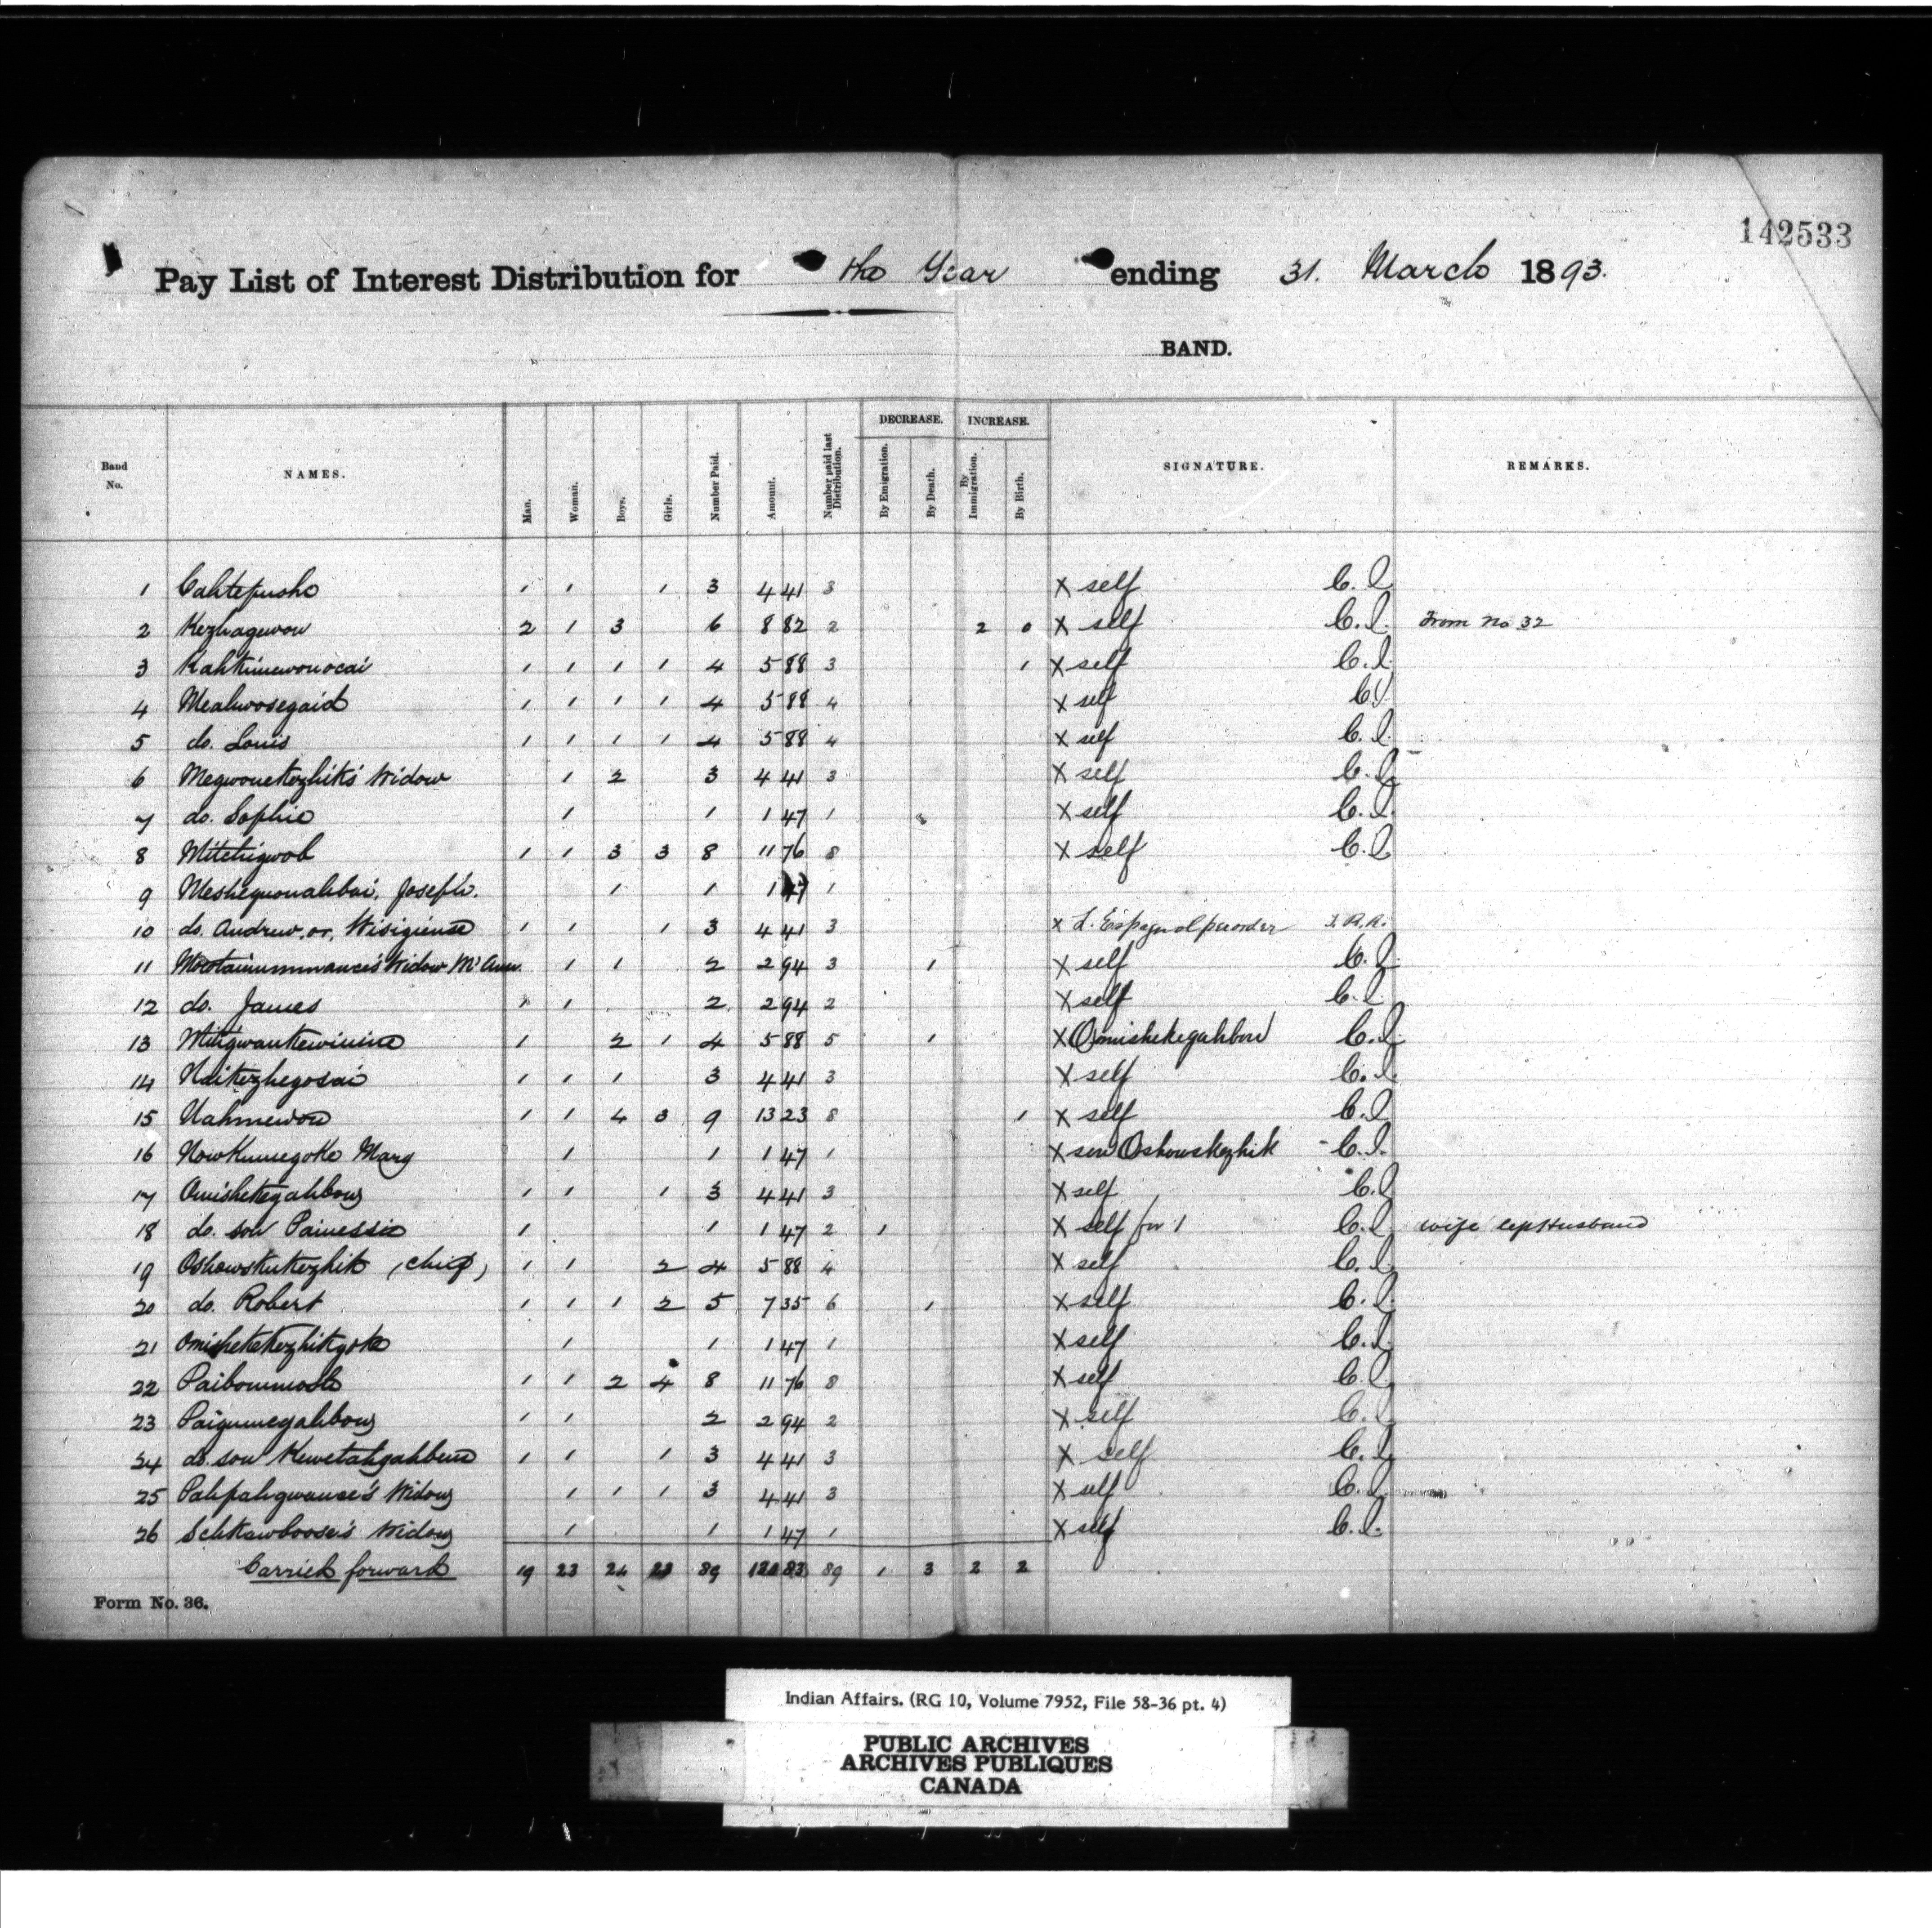 142533
Pay List of Interest Distribution for the Year ending 31. March 1893.
BAND.
Band No. NAMES. Man. Woman. Boys. Girls. Number Paid. Amount. Number paid last Distribution. DECREASE. By Emigration. By Death. INCREASE. By Immigration. By Birth. SIGNATURE. REMARKS.
1 Cahtepusho 1 1 1 3 4 41 3 X self C. I.
2 Kezhagewow 2 1 3 6 8 82 2 2 0 X self C. I. From No 32
3 Kahkinewonocai 1 1 1 1 4 5 88 3 1 X self C. I.
4 Meahwosegaid 1 1 1 1 4 5 88 4 X self C. I.
5 do. Louis 1 1 1 1 4 5 88 4 X self C. I.
6 Megwonekezhik's Widow 1 2 3 4 41 3 X self C. I.
7 do. Sophie 1 1 1 47 1 X self C. I.
8 Mitchigwob 1 1 3 3 8 11 76 8 X self C. I.
9 Meshequonahbai, Joseph. 1 1 1 47 1
10 do. Andrew, or, Wisigiense 1 1 1 3 4 41 3 X L. Espagnol per order
11 Widow 1 1 2 2 94 3 1 X self C. I.
12 do. James 1 1 2 2 94 2 X self C. I.
13 Mitigwaukewinine 1 2 1 4 5 88 5 1 X Omishekegahbow C. I.
14 Naikezhegosai 1 1 1 3 4 41 3 X self C. I.
15 Nahmewon 1 1 4 3 9 13 23 8 1 X self C. I.
16 NowKumegoke Mary 1 1 1 47 1 X son Oshowskezhik C. I.
17 Omishekegahbow 1 1 1 3 4 41 3 X self C. I.
18 do. son Painessie 1 1 1 47 2 1 X self for 1 C. I. wife left Husband
19 Oshowskukezhik (chief) 1 1 2 4 5 88 4 X self C. I.
20 do. Robert 1 1 1 2 5 7 35 6 1 X self C. I.
21 Omishekekezhikgoke 1 1 1 47 1 X self C. I.
22 Paibommosh 1 1 2 4 8 11 76 8 X self C. I.
23 Paigumegahbow 1 1 2 2 94 2 X self C. I.
24 do. son Kewetahgahbow 1 1 1 3 4 41 3 X self C. I.
25 Pahpahgwanse's Widow 1 1 1 3 4 41 3 X self C. I.
26 Schkawboose's Widow 1 1 1 47 1 X self C. I.
Carried forward 19 23 24 23 89 130 83 89 1 3 2 2
Form No. 36.
Indian Affairs. (RG 10, Volume 7952, File 58-36 pt. 4)
PUBLIC ARCHIVES
ARCHIVES PUBLIQUES
CANADA